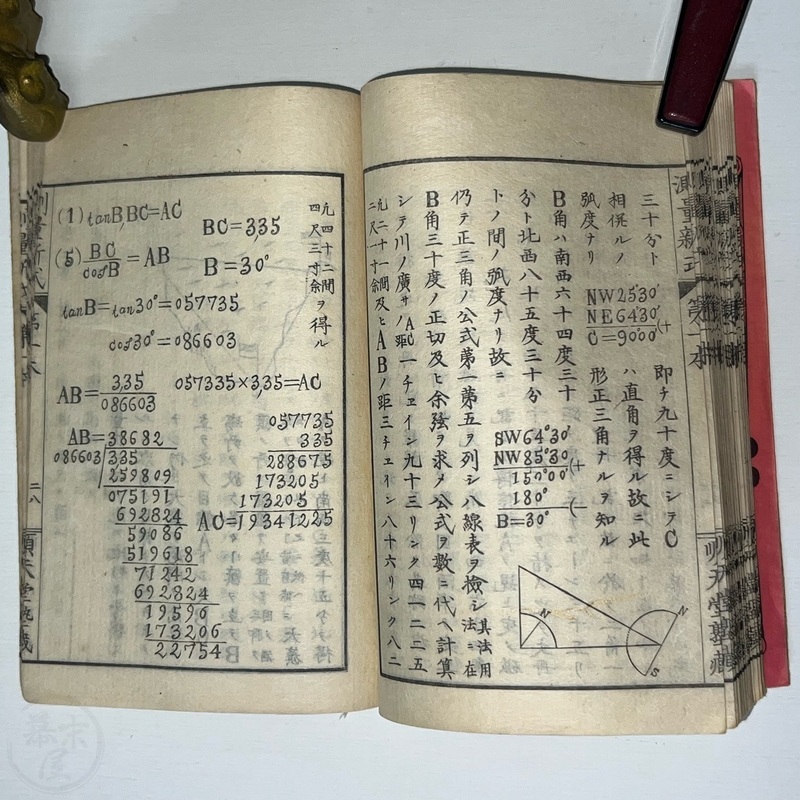 測量新式
第一本
順天堂塾蔵
三十分ト
相併ルノ
弧度ナリ
NW25°30′
NE64°30′
C=90°00′(+
即チ九十度ニシテC
ハ直角ヲ得ル故ニ此
形正三角ナルヲ知ル
B角ハ南西六十四度三十
分ト北西八十五度三十分
トノ間ノ弧度ナリ故ニ
SW64°30′
NW85°30′(+
150°00′
180°(−
B=30°
仍テ正三角ノ公式第一第五ヲ列シ八線表ヲ検シ其法用法ニ在
B角三十度ノ正切及ヒ余弦ヲ求メ公式ヲ數ニ代ヘ計算
シテ川ノ廣サノACノ距一チエイン九十三リンク四一二二五
九二十一間二尺一寸余及ヒABノ距三チエイン八十六リンク八二
N
N
S
九四十二間四尺三寸余ヲ得ル
(1)tanB,BC=AC
BC=3,35
(5)BC/cosB=AB
B=30°
tanB=tan30°=057735
cos30°=086603
AB=3,35/086603
057335×3,35=AC
AB=38682
086603)335
259809
075191
692824
59086
519618
71242
692824
19596
173206
22754
057735
335
288675
173205
173205
AC=19341225
二八